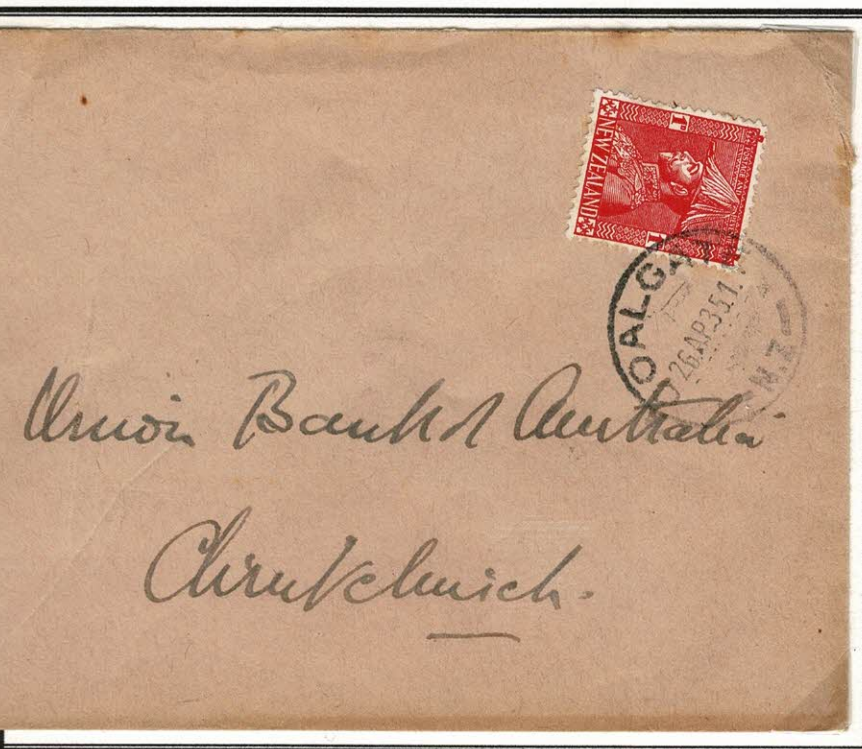 1ᴰ
NEW ZEALAND
1ᴰ
POSTAGE AND
COALGATE
26AP35
N.Z.
Union Bank of Australia
Christchurch.